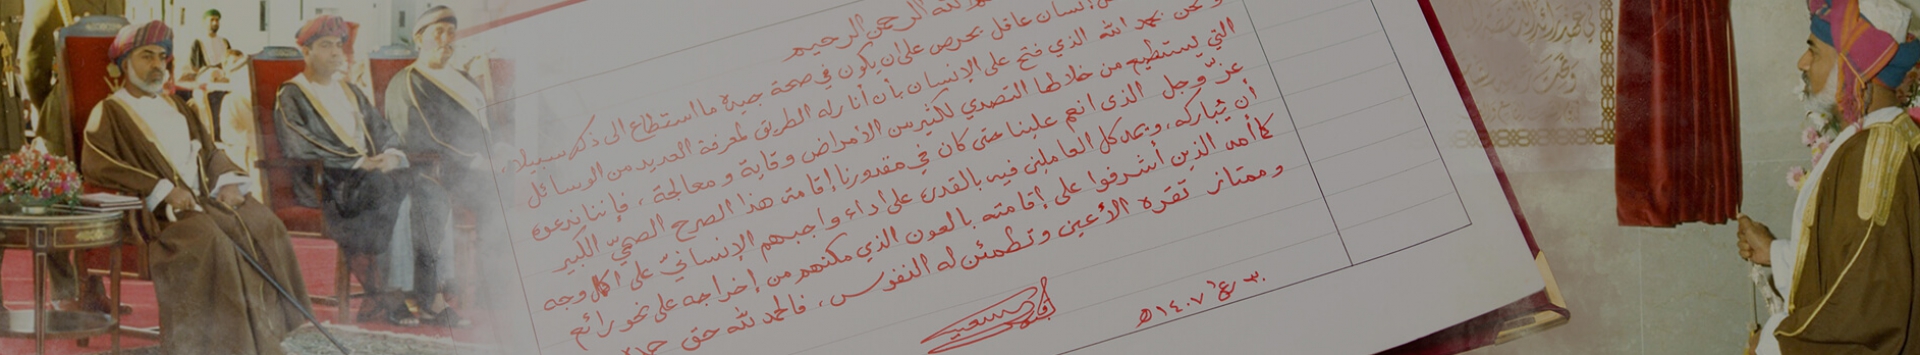 الله الرحمن الرحيم
إنسان عاقل يحرص على أن يكون في صحة جيدة ما استطاع الى ذلك سبيلا
ونحن بحمد الله الذي فتح على الإنسان بأن أنار له الطريق لمعرفة العديد من الوسائل
التي يستطيع من خلالها التصدي للكثير من الأمراض وقاية ومعالجة ، فإننا ندعوه
عزّ وجل الذى انعم علينا حتى كان في مقدورنا إقامة هذا الصرح الصحيّ الكبير
أن يباركه ، ويمد كل العاملين فيه بالقدرة على اداء واجبهم الإنسانيّ على اكمل وجه
كما أمد الذين أشرفوا على إقامته بالعون الذي مكنهم من إخراجه على نحو رائع
وممتاز تقره الأعين وتطمئن له النفوس ، فالحمد لله حق حمده
١٤٠٧هـ